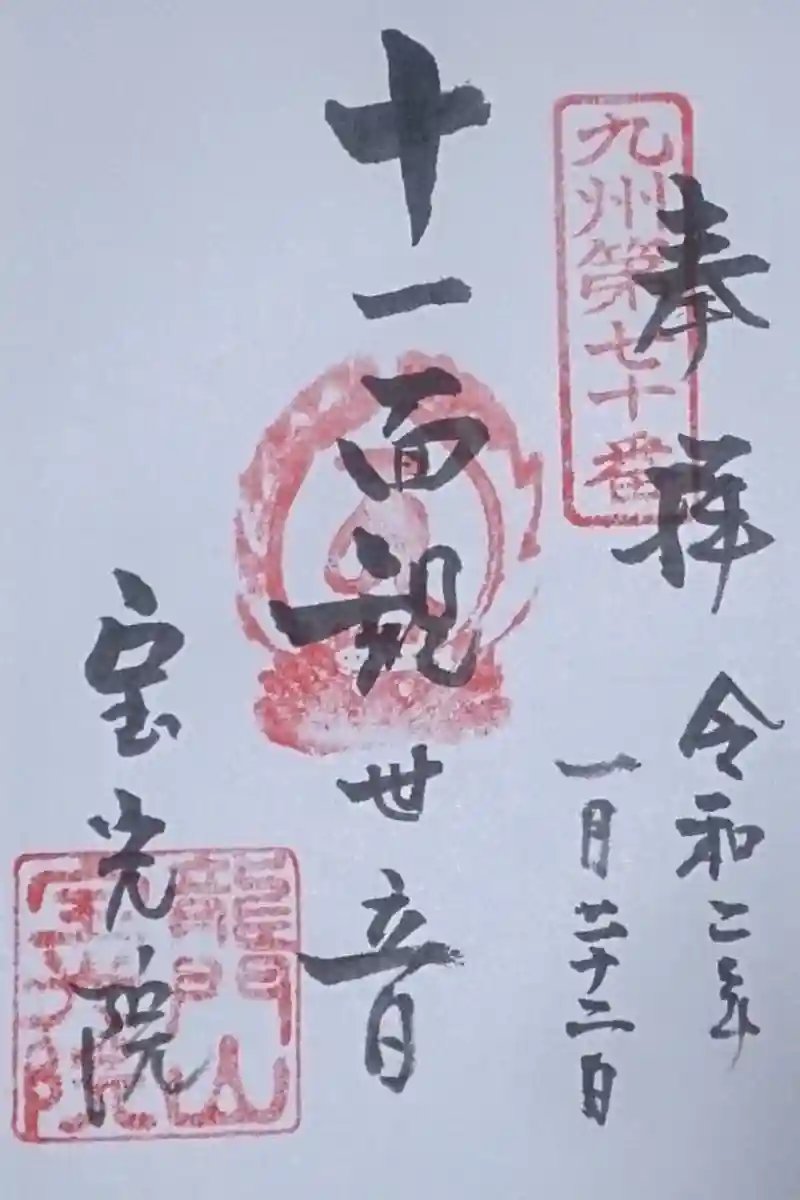 九州第七十番
奉拝
令和二年
一月二十二日
十一面観世音
宝光院
龍門山
宝光院